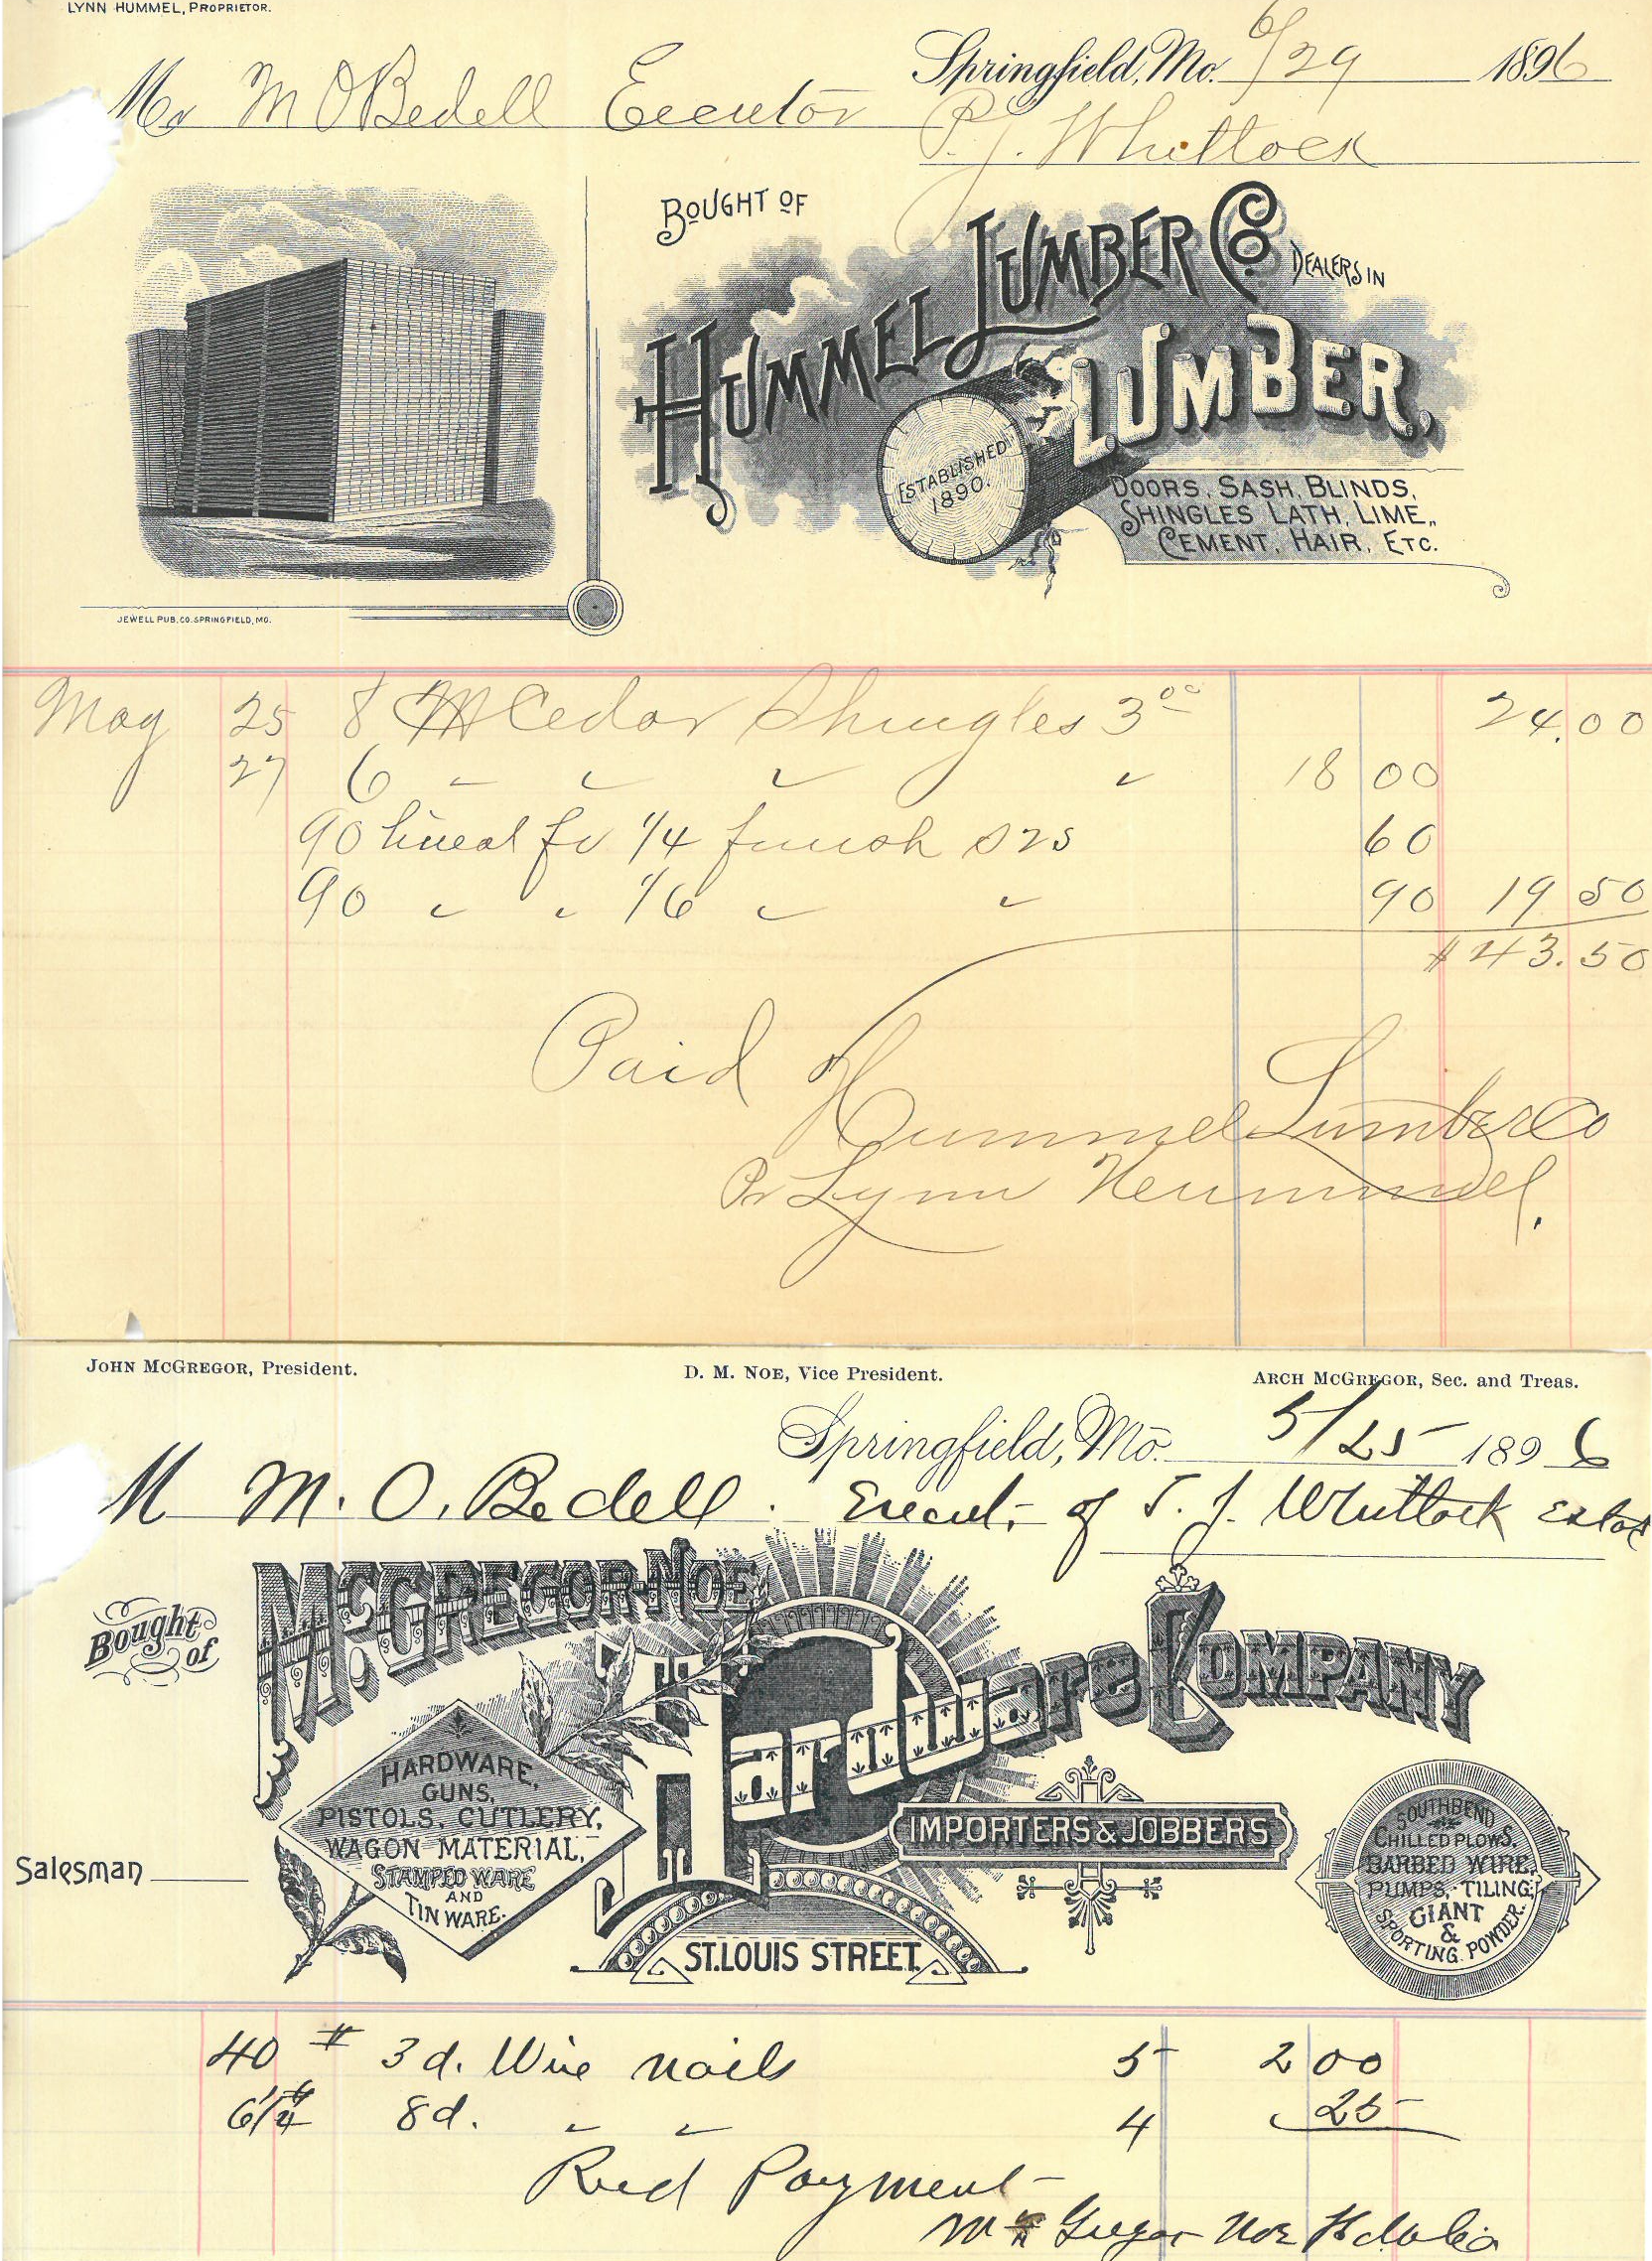 LYNN HUMMEL, PROPRIETOR.
Springfield, Mo. 6/29 1896
Mr M O Bedell Executor
P. J. Whitlock
BOUGHT OF
HUMMEL LUMBER CO. DEALERS IN
LUMBER,
ESTABLISHED 1890.
DOORS, SASH, BLINDS,
SHINGLES LATH, LIME,
CEMENT, HAIR, ETC.
JEWELL PUB. CO. SPRINGFIELD, MO.
May 25 8 M Cedar Shingles 3 00 24.00
27 6 " " " " 18 00
90 lineal ft 1/4 finish S2S 60
90 " " 1/6 " " 90 19 50
$43.50
Paid
Hummel Lumber Co
Pr Lynn Hummel.
JOHN MCGREGOR, President. D. M. NOE, Vice President. ARCH MCGREGOR, Sec. and Treas.
Springfield, Mo. 5/25 1896
M M. O. Bedell. Execut. of T. J. Whitlock Estat
Bought of
MCGREGOR-NOE
Hardware COMPANY
HARDWARE,
GUNS,
PISTOLS, CUTLERY,
WAGON MATERIAL,
STAMPED WARE
AND
TIN WARE.
IMPORTERS & JOBBERS
SOUTHBEND
CHILLED PLOWS,
BARBED WIRE,
PUMPS, TILING,
GIANT
&
SPORTING POWDER.
Salesman
ST. LOUIS STREET.
40 # 3d. Wire nails 5 2 00
6 1/4 # 8d. " " 4 25
Recd Payment
McGregor Noe Hdw Co